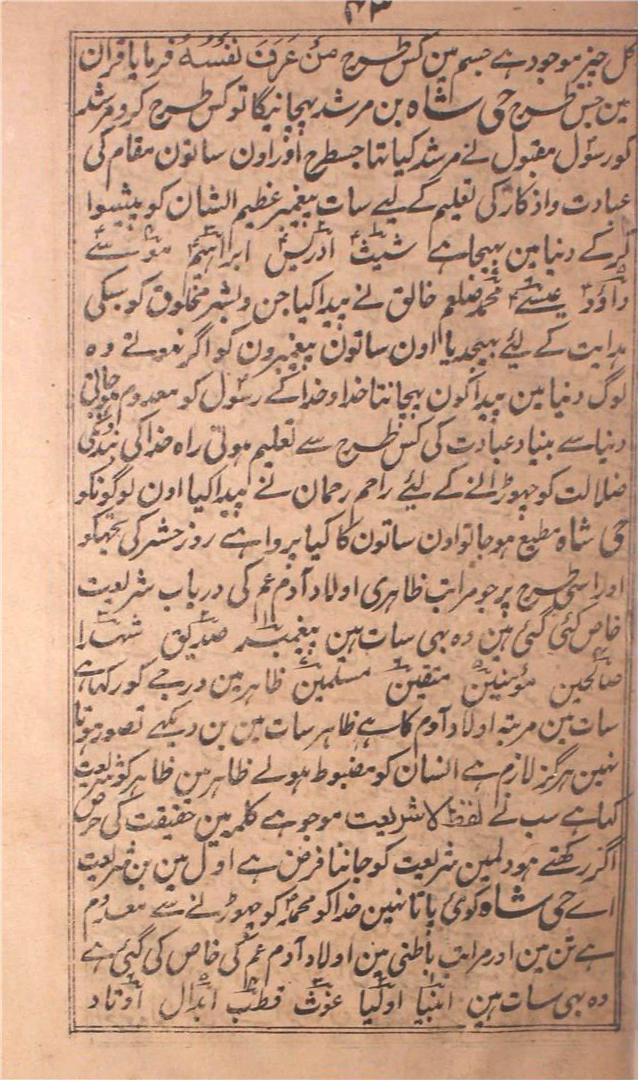 ۴۳
کل چیز موجود ہے جسم مین کس طرح مَنْ عَرَفَ نَفْسَہُ فرمایا قران
مین جس طرح حی شاہ بن مرشد پہچانیگا تو کس طرح کرو مرشد
کو رسول مقبول نے مرشد کیا تہا جسطرح اور اون ساتون مقام کی
عبادت واذکار کی تعلیم کے لیے سات پیغمبر عظیم الشان کو پیشوا
کر کے دنیا مین بہیجا ہے شیث ادریس ابراہیم موسے
داؤد عیسے محمد صلعم خالق نے پیدا کیا جن و بشر مخلوق کو سبکی
ہدایت کے لیئے بہیجدیا اون ساتون پیغمبرون کو اگر نہوتے وہ
لوگ دنیا مین پیدا کون پہچانتا خدا و خدا کے رسول کو معدوم ہوجاتی
دنیا سے بنیاد عبادت کی کس طرح سے تعلیم ہوتی راہ خدا کی بندگی
ضلالت کو چہوڑانے کے لیئے راحم رحمان نے پیدا کیا اون لوگونکو
حی شاہ مطیع ہوجا تو اون ساتون کا کیا پروا ہے روز حشر کی تجہکو
اور اسی طرح پر جو مراتب ظاہری اولاد آدم عم کی در باب شریعت
خاص کئی گئی ہین وہ بہی سات ہین پیغمبر صدیق شہدا
صالحین مؤمنین متقین مسلمین ظاہر مین درجے کو رکہا ہے
سات ہین مرتبہ اولاد آدم کا ہے ظاہر سات مین بن دیکہے تصور ہوتا
نہین ہرگز لازم ہے انسان کو مضبوط ہولے ظاہر مین ظاہر کو شریعت
کہا ہے سب نے لفظ لا شریعت موجو ہے کلمہ مین حقیقت کی حرص
اگر رکہتے ہو دلمین شریعت کو جاننا فرض ہے اول مین بن شریعت
اے حی شاہ کوئی پاتا نہین خدا کو محمد کو چہوڑنے سے معدوم
ہے تن مین اور مراتب باطنی مین اولاد آدم عم کی خاص کی گئی ہے
وہ بہی سات ہین انبیا اولیا غوث قطب ابدال اوتاد